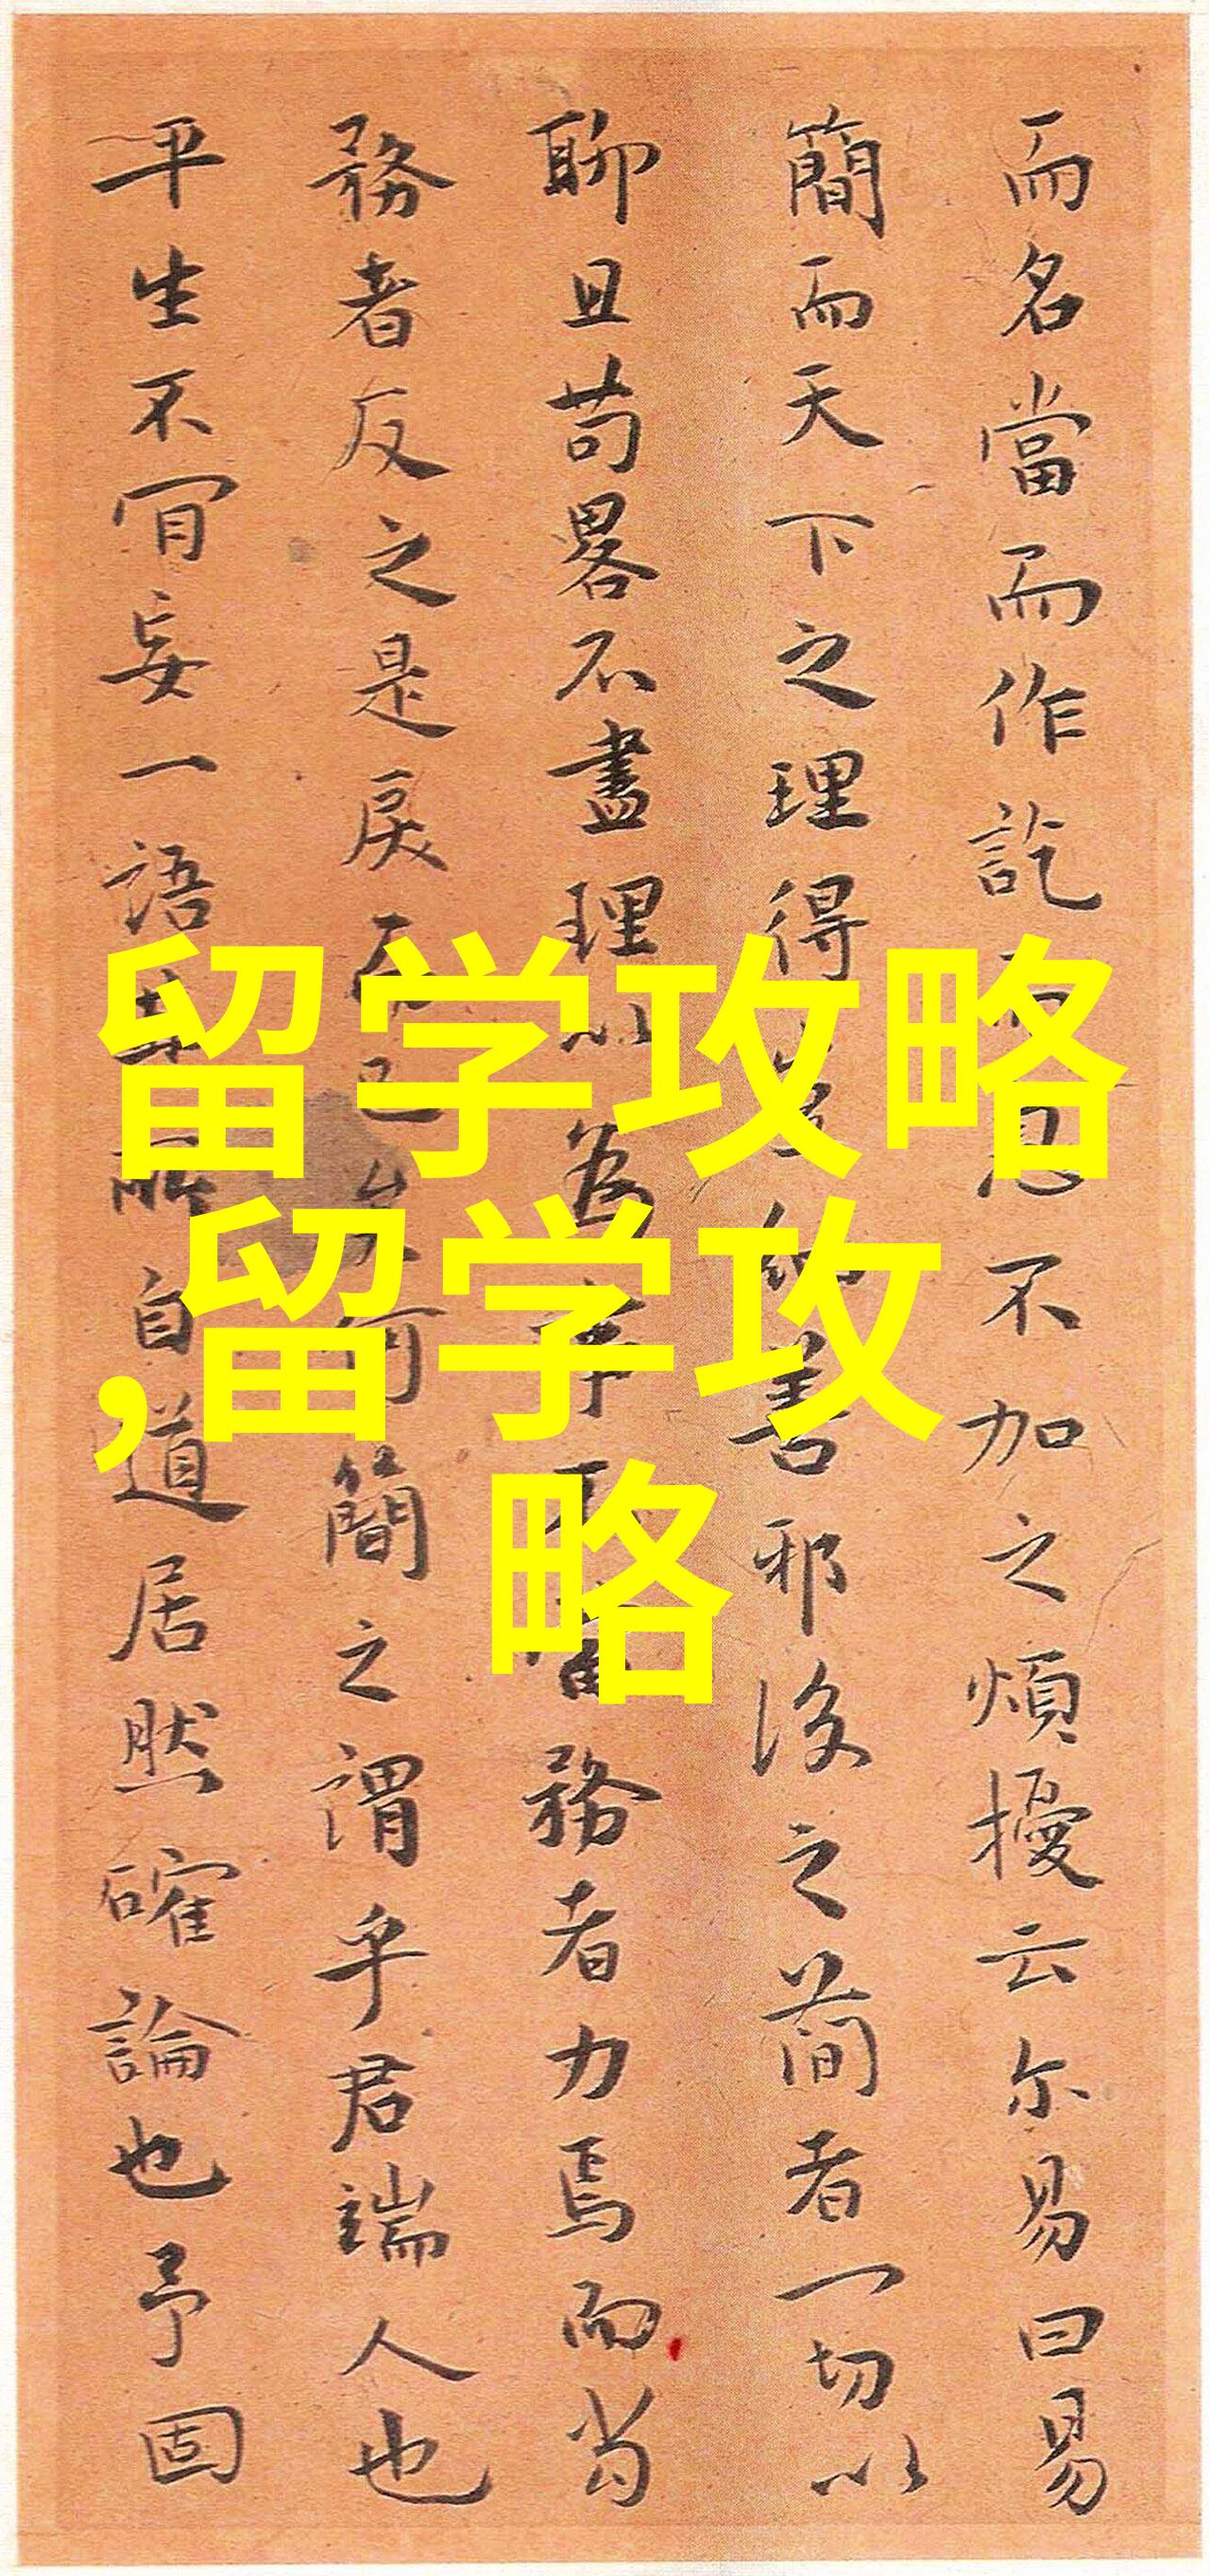 留学攻略
,留学攻
略
而名當而作訖不加之煩擾云尔易曰易
簡而天下之理得善邪後之簡者一切以
聊且苟畧不盡理以為務者力焉而當
務者反之是戾而已矣何簡之謂乎君端人也
平生不肯妄一語自道居然確論也予固